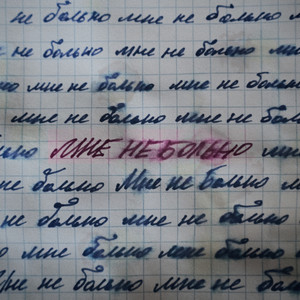 не больно мне не больно м
не больно мне не больно мне
мне не больно мне не больно
мне не больно мне не больно
МНЕ НЕ БОЛЬНО мне
не больно Мне не больно м
не больно мне не больно
мне больно мне больно
Мне не больно мне не больно